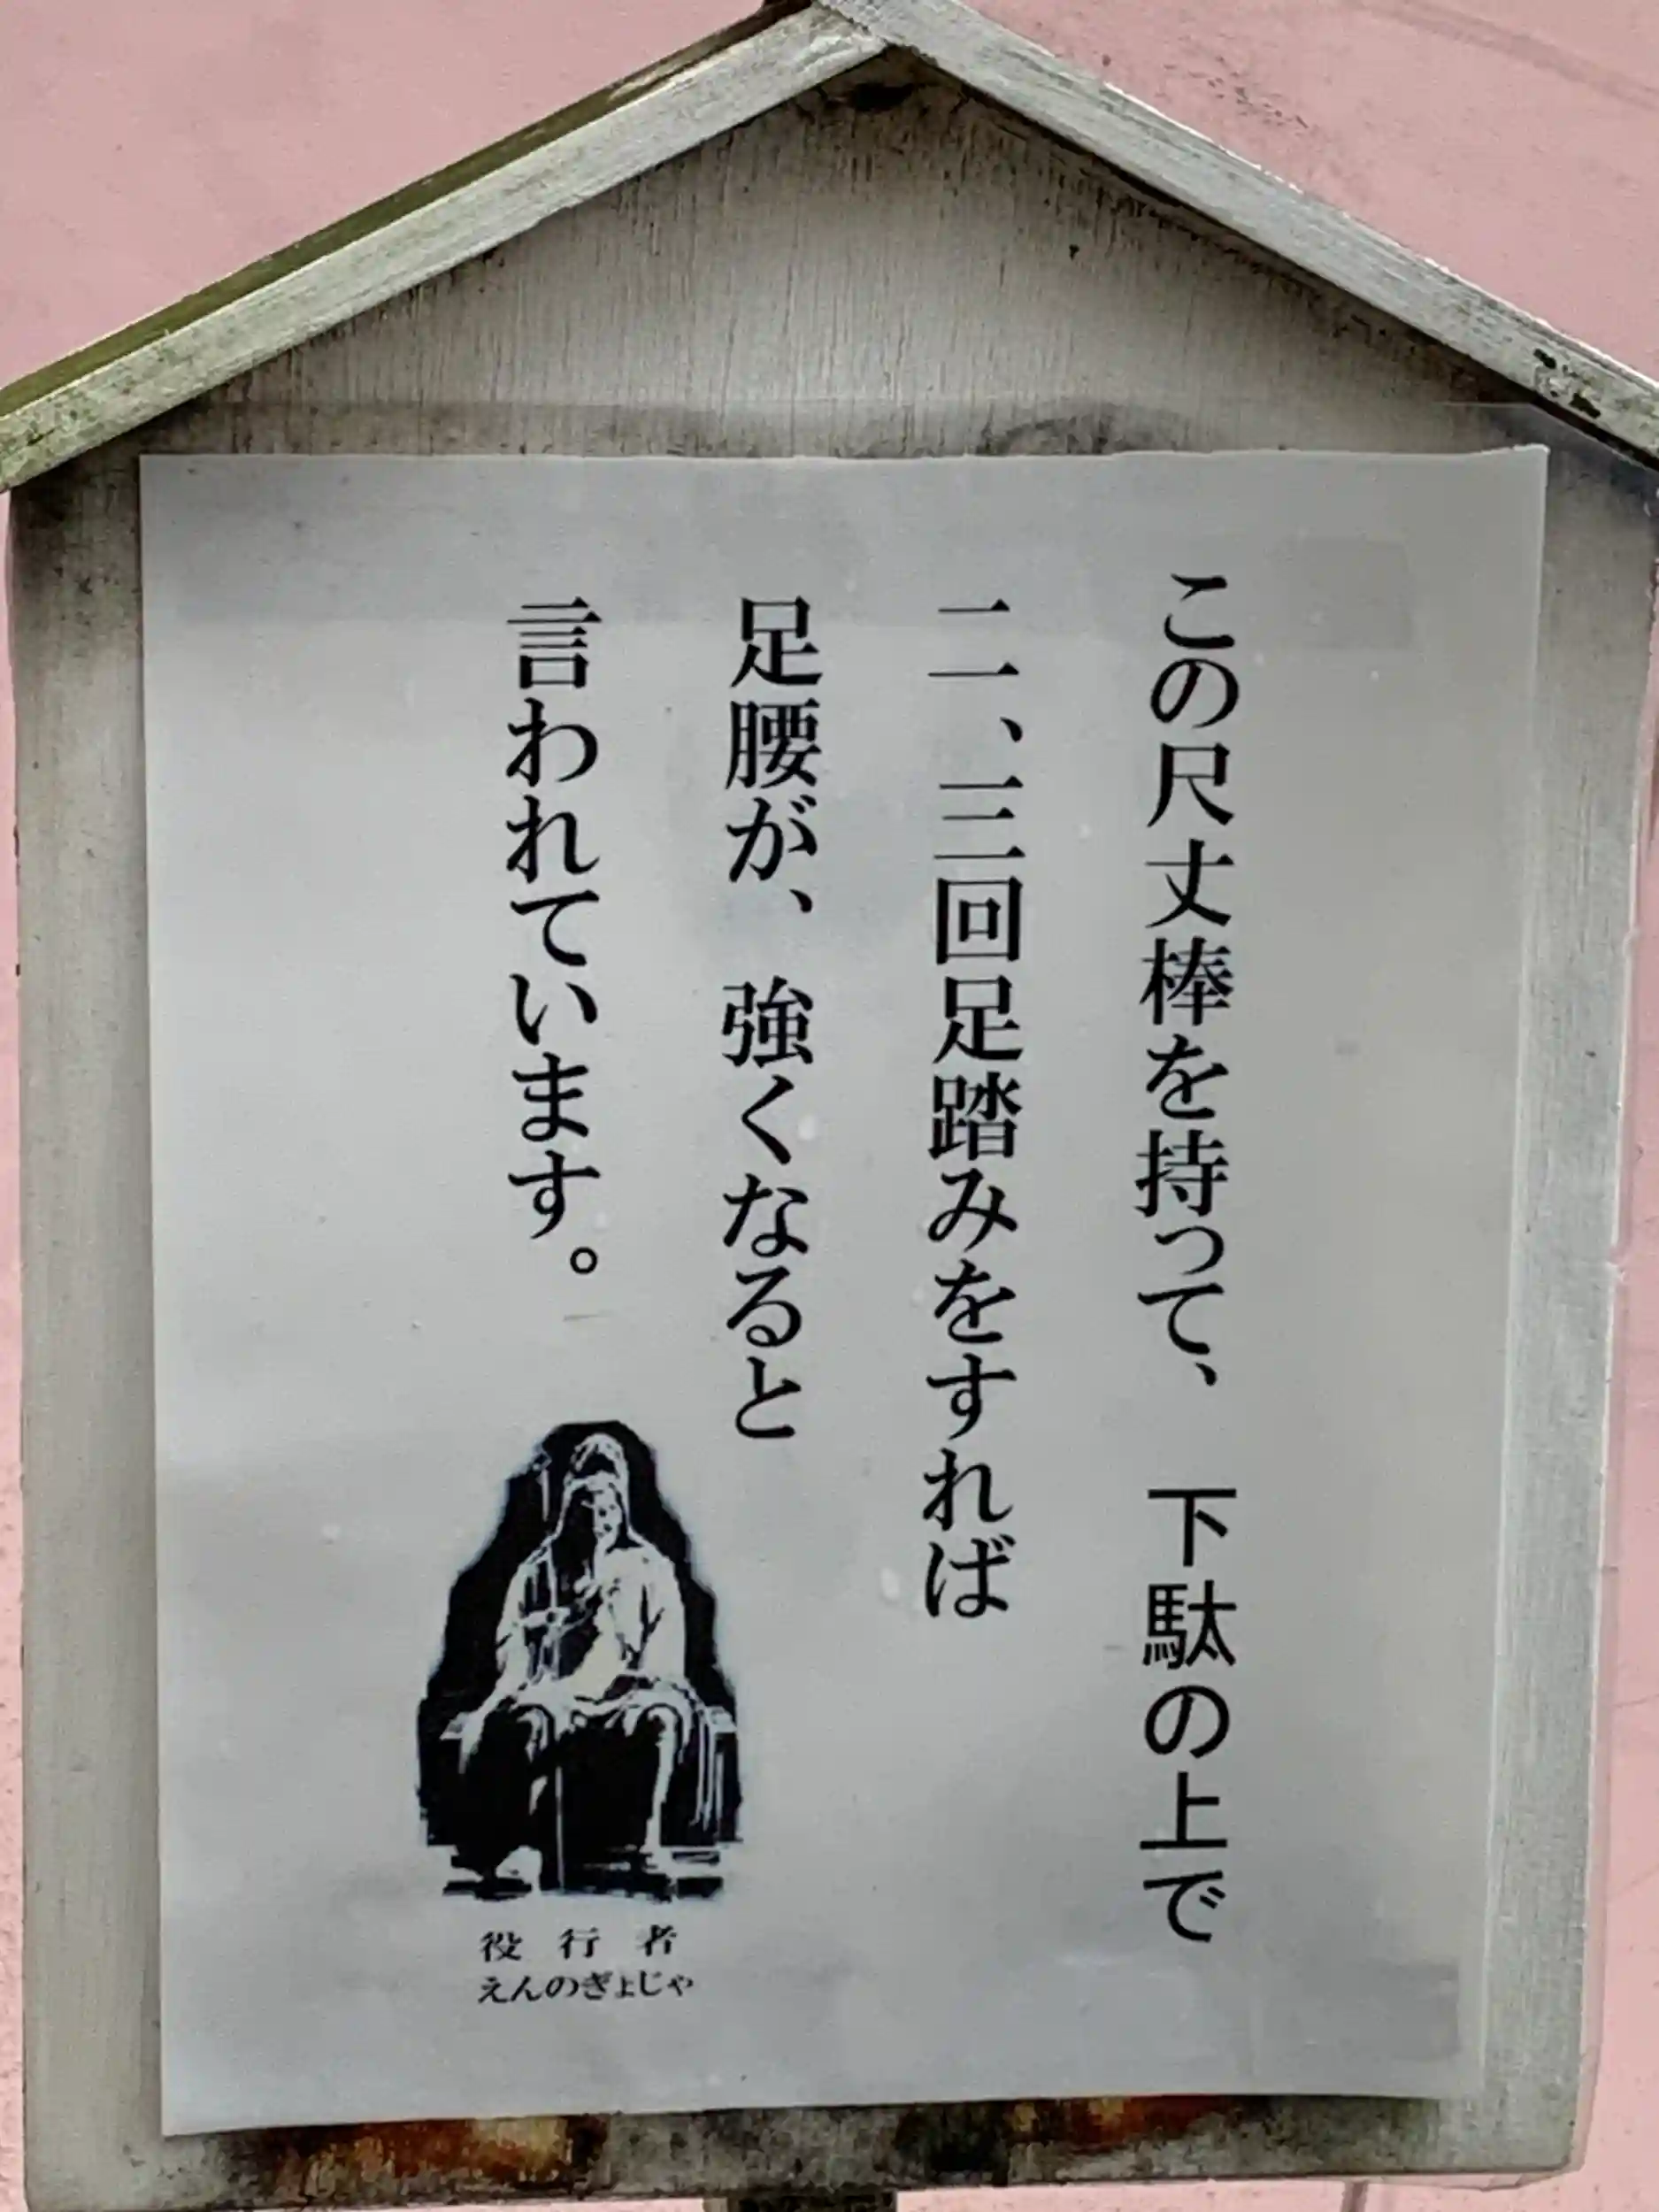 この尺丈棒を持って、　下駄の上で
二、三回足踏みをすれば
足腰が、　強くなると
言われています。
役 行 者
えんのぎょじゃ